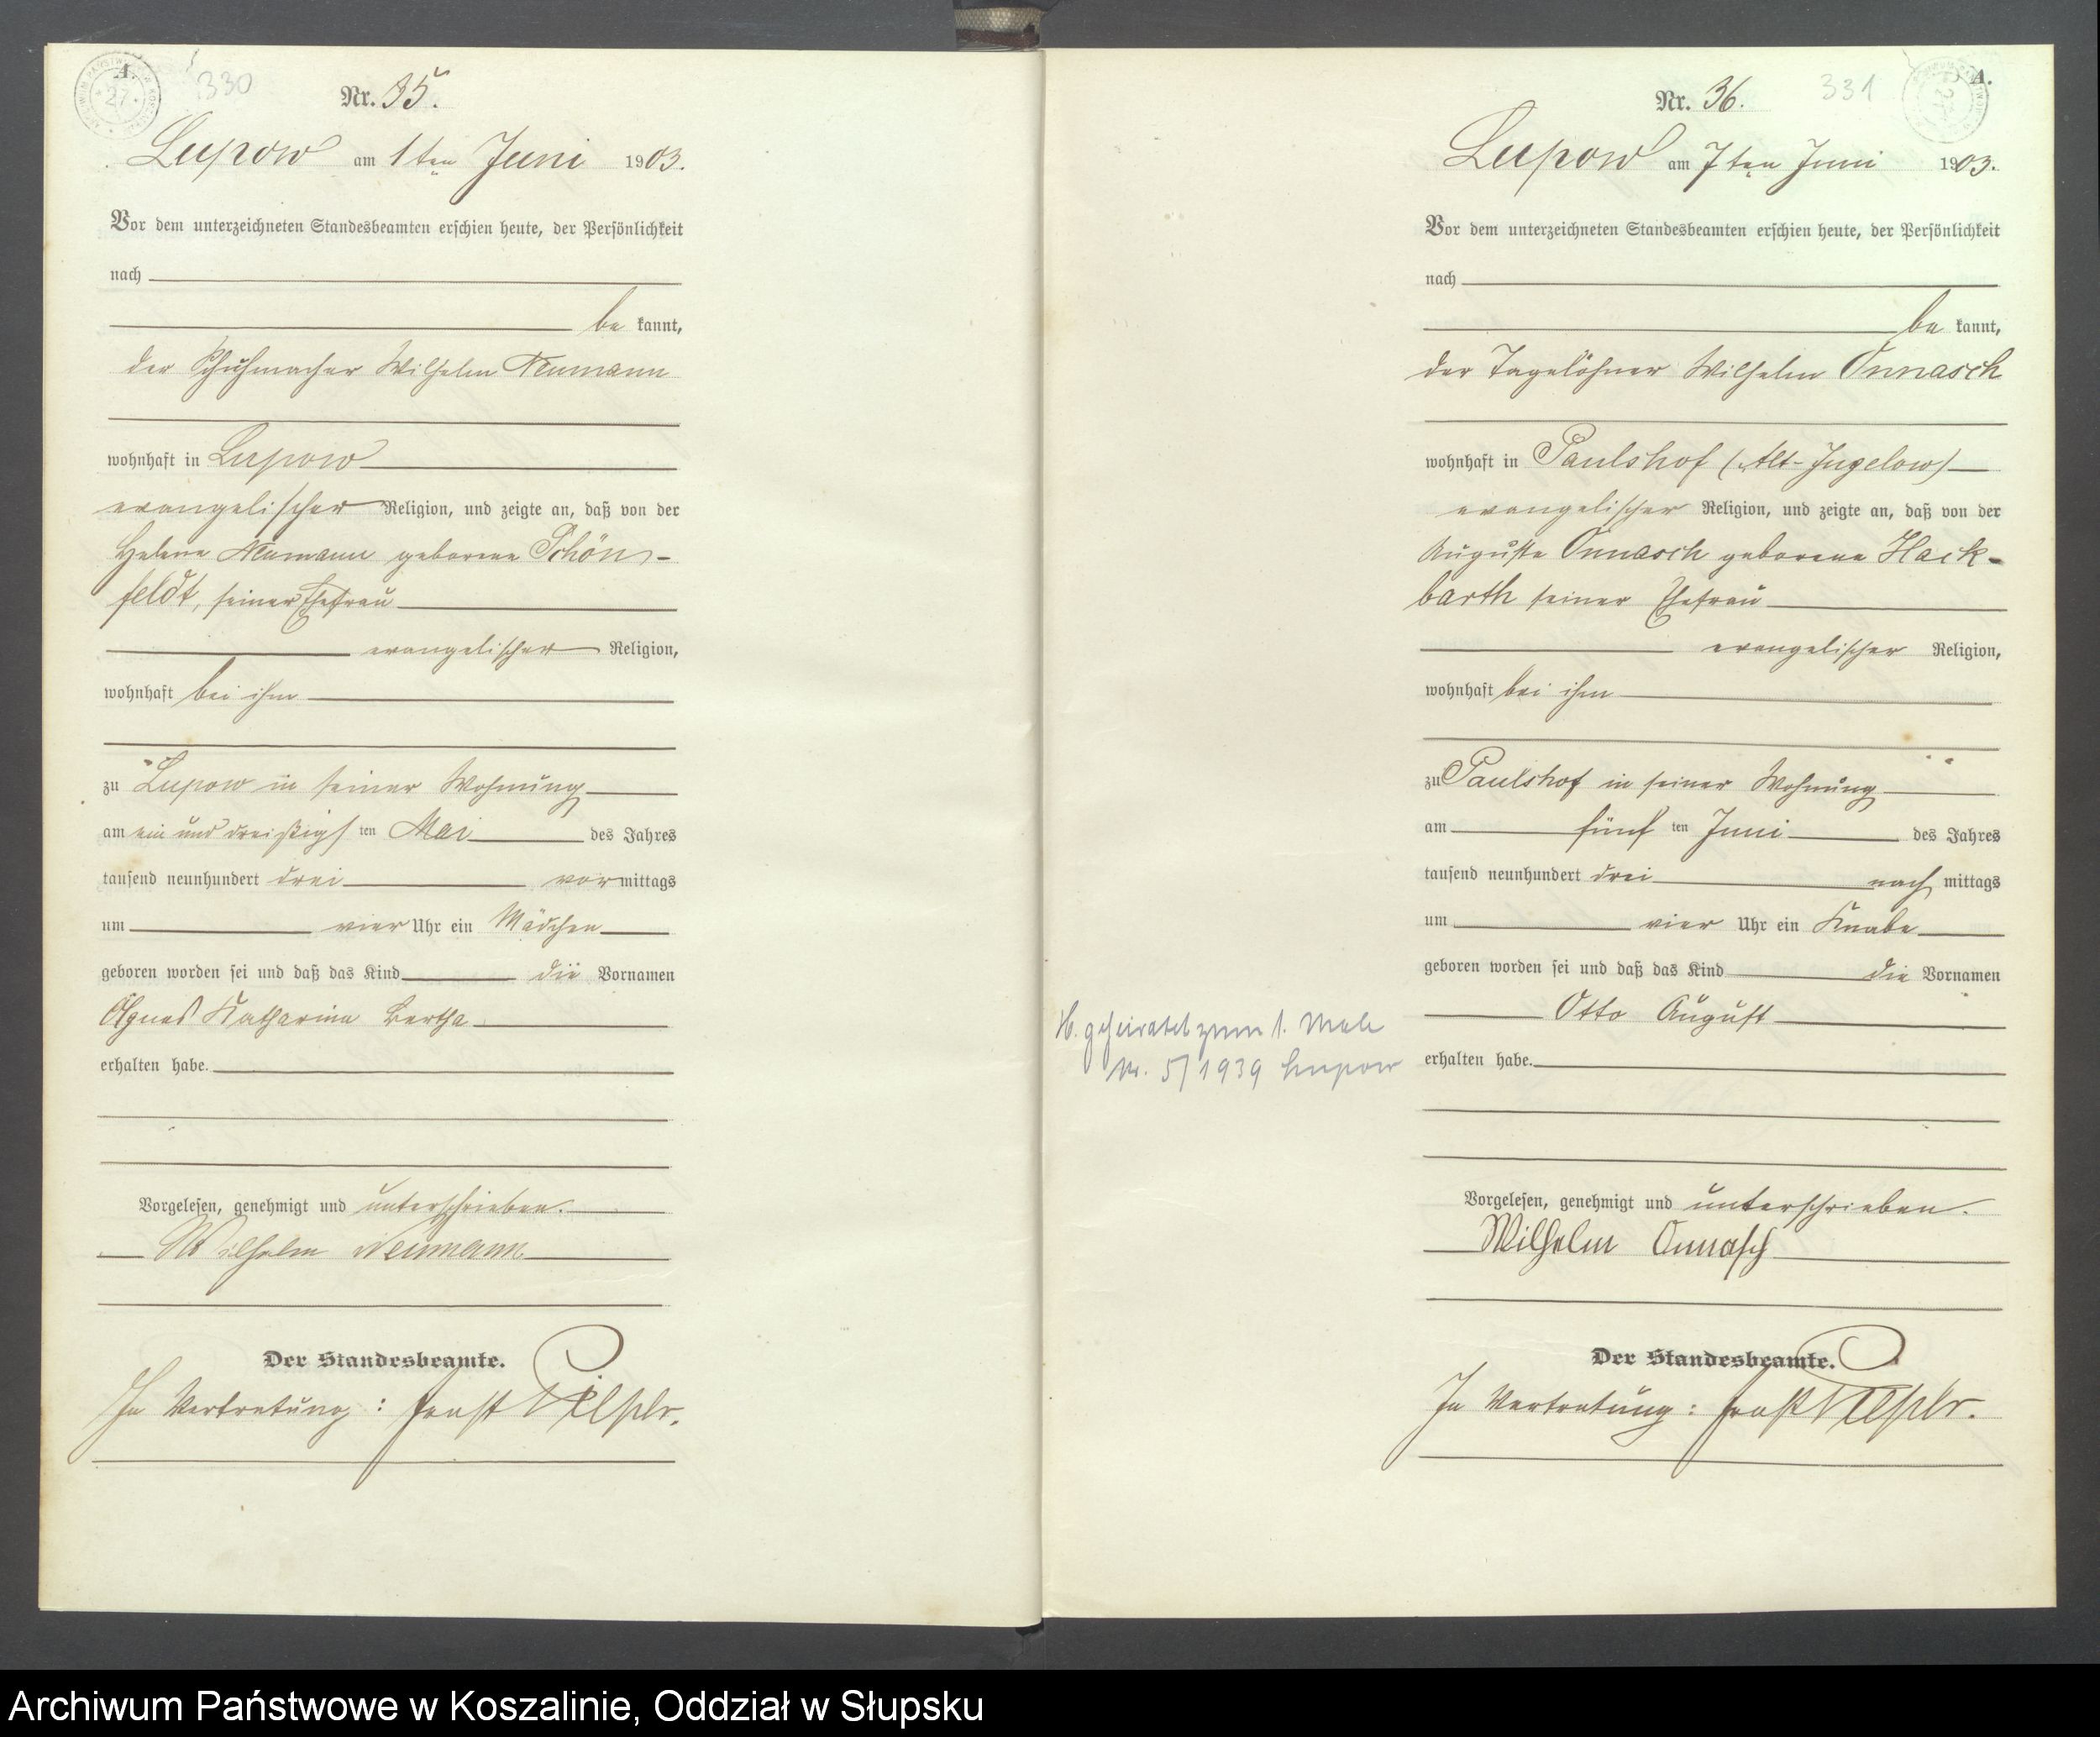 A.
330
Nr. 35.
Lupow am 1ten Juni 1903.
Vor dem unterzeichneten Standesbeamten erschien heute, der Persönlichkeit
nach
be kannt,
der Schuhmacher Wilhelm Neumann
wohnhaft in Lupow
evangelischer Religion, und zeigte an, daß von der
Helene Neumann geborene Schön-
feldt, seiner Ehefrau
evangelischer Religion,
wohnhaft bei ihm
zu Lupow in seiner Wohnung
am ein und dreißigsten Mai des Jahres
tausend neunhundert drei vormittags
um vier Uhr ein Mädchen
geboren worden sei und daß das Kind die Vornamen
Agnes Katharina Bertha
erhalten habe.
Vorgelesen, genehmigt und unterschrieben.
Wilhelm Neumann
Der Standesbeamte.
In Vertretung: Ernst
A.
331
Nr. 36.
Lupow am 7ten Juni 1903.
Vor dem unterzeichneten Standesbeamten erschien heute, der Persönlichkeit
nach
be kannt,
der Tagelöhner Wilhelm Onnasch
wohnhaft in Paulshof (Alt-Jugelow)
evangelischer Religion, und zeigte an, daß von der
Auguste Onnasch geborene Hack-
barth seiner Ehefrau
evangelischer Religion,
wohnhaft bei ihm
zu Paulshof in seiner Wohnung
am fünf ten Juni des Jahres
tausend neunhundert drei nach mittags
um vier Uhr ein Knabe
geboren worden sei und daß das Kind die Vornamen
Otto August
erhalten habe.
geheiratet zum 1. Male
Nr. 5/1939 Lupow
Vorgelesen, genehmigt und unterschrieben.
Wilhelm Onnasch
Der Standesbeamte.
In Vertretung: Ernst
Archiwum Państwowe w Koszalinie, Oddział w Słupsku